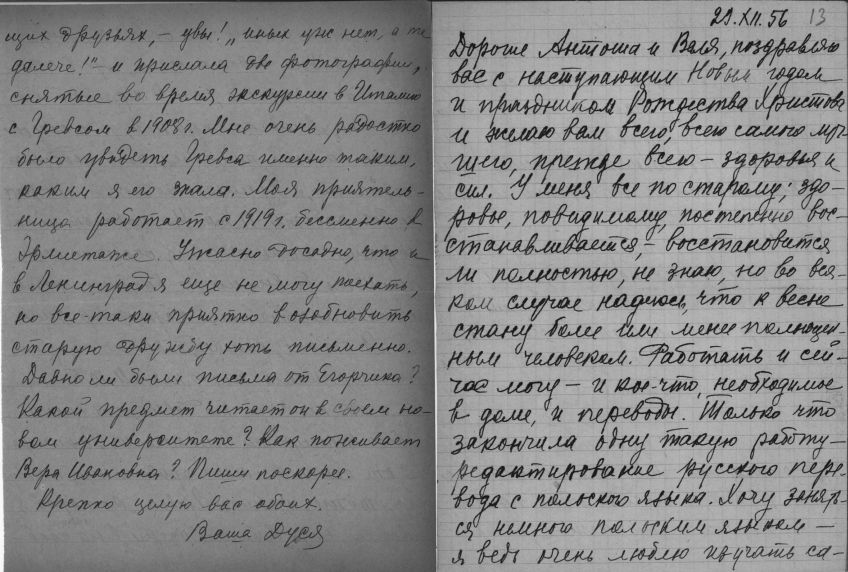 щих друзьях, – увы! „иных уж нет, а те
далече!" – и прислала две фотографии,
снятые во время экскурсии в Италию
с Гревсом в 1908 г. Мне очень радостно
было увидеть Гревса именно таким,
каким я его знала. Моя приятель-
ница работает с 1919 г. бессменно в
Эрмитаже. Ужасно досадно, что и
в Ленинград я еще не могу поехать,
но все-таки приятно возобновить
старую дружбу хоть письменно.
Давно ли были письма от Егорчика?
Какой предмет читает он в своем но-
вом университете? Как поживает
Вера Ивановна? Пиши поскорее.
Крепко целую вас обоих.
Ваша Дуся
29.XII.56
13
Дорогие Антоша и Валя, поздравляю
вас с наступающим Новым годом
и праздником Рождества Христова
и желаю вам всего, всего самого луч-
шего, прежде всего – здоровья и
сил. У меня все по старому; здо-
ровье, повидимому, постепенно вос-
станавливается, – восстановится
ли полностью, не знаю, но во вся-
ком случае надеюсь, что к весне
стану более или менее полноцен-
ным человеком. Работать и сей-
час могу – и кое-что необходимое
в доме, и переводы. Только что
закончила одну такую работу –
редактирование русского пере-
вода с польского языка. Хочу занять-
ся немного польским языком –
я ведь очень люблю изучать са-